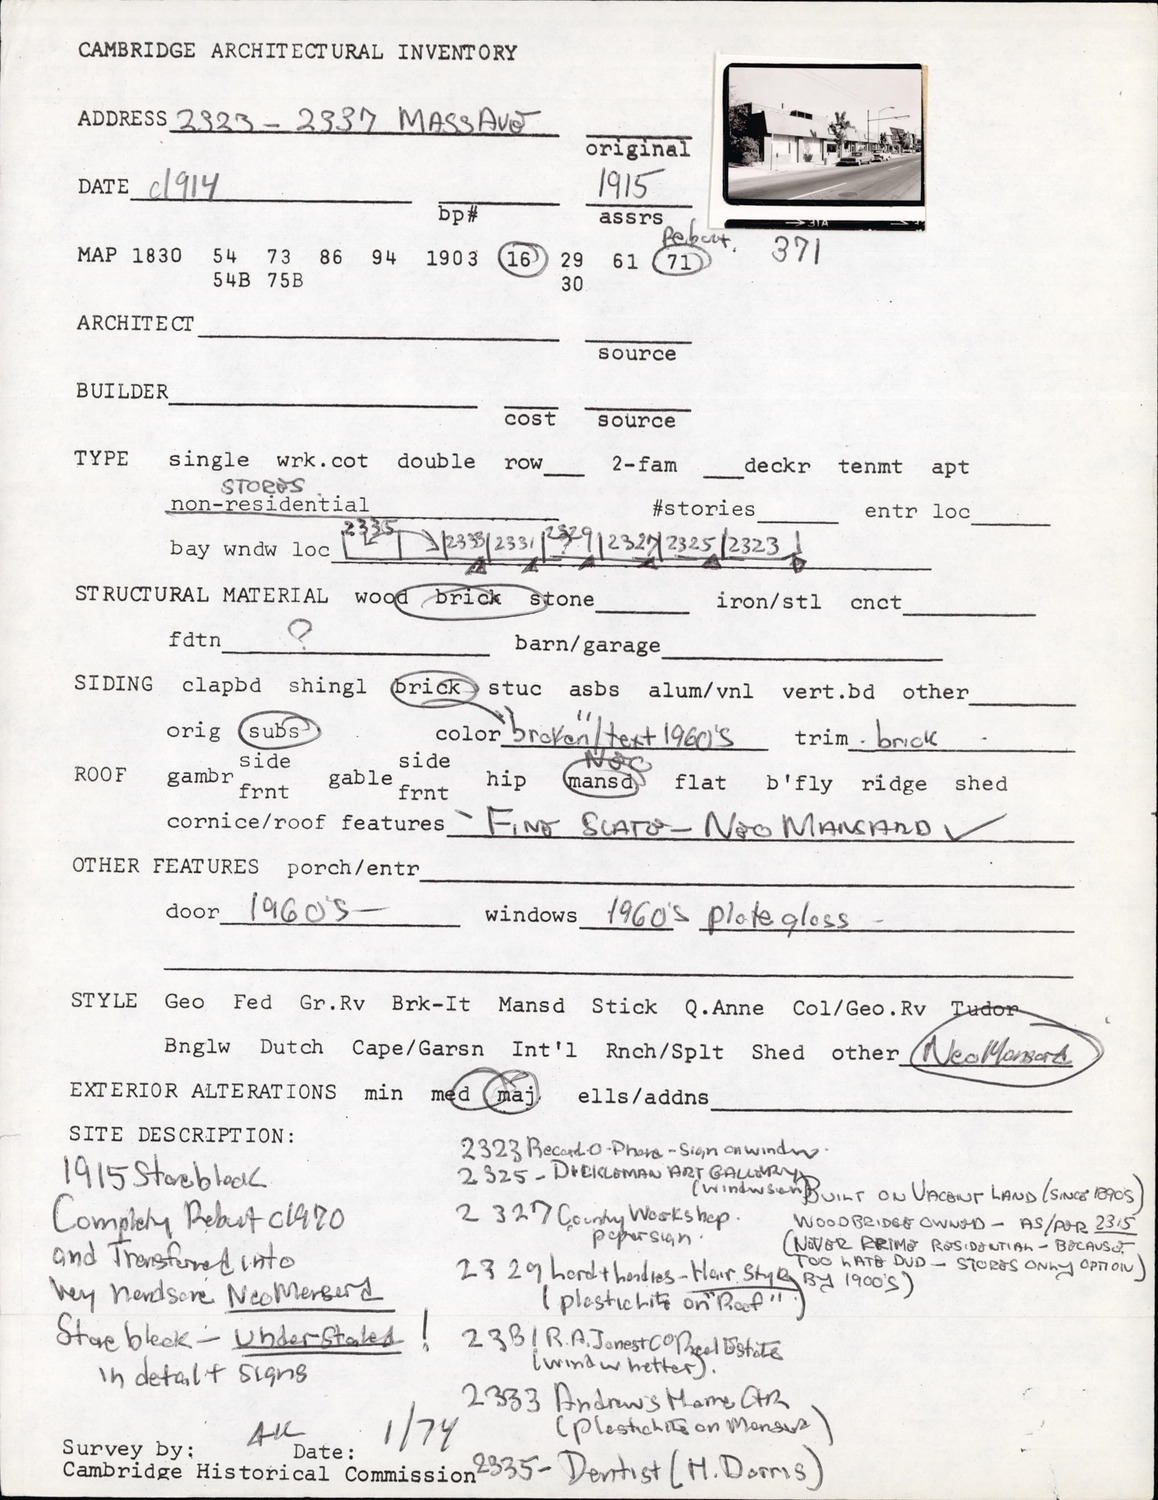 CAMBRIDGE ARCHITECTURAL INVENTORY
ADDRESS 2323 - 2337 MASS AVE
original
DATE c1914 1915
bp# assrs
Rebut. 371
MAP 1830 54 73 86 94 1903 16 29 61 71
54B 75B 30
ARCHITECT
source
BUILDER
cost source
TYPE single wrk.cot double row 2-fam deckr tenmt apt
STORES
non-residential #stories entr loc
bay wndw loc 2335 2333 2331 2329 2327 2325 2323
STRUCTURAL MATERIAL wood brick stone iron/stl cnct
fdtn ? barn/garage
SIDING clapbd shingl brick stuc asbs alum/vnl vert.bd other
orig subs color broken/text 1960's trim brick
side side Neo
ROOF gambr gable hip mansd flat b'fly ridge shed
frnt frnt
cornice/roof features FINE SLATE - NEO MANSARD ✓
OTHER FEATURES porch/entr
door 1960's - windows 1960's plate glass -
STYLE Geo Fed Gr.Rv Brk-It Mansd Stick Q.Anne Col/Geo.Rv Tudor
Bnglw Dutch Cape/Garsn Int'l Rnch/Splt Shed other NeoMansard
EXTERIOR ALTERATIONS min med maj ells/addns
SITE DESCRIPTION:
1915 Storeblock
Completly Rebut c1970
and Transformed into
very handsome NeoMansard
Storeblock - Under-Stated !
in detail + signs
2323 Record-O-Phone - Sign on window.
2325 - ART GALLERY
(window sign)
2327 Country Workshop.
paper sign.
2329 lord + ladies - Hair Style
(plastic hite on "Roof")
2331 R.A. Jones + Co Real Estate
(window letter).
2333 Andrew's Home Ctr
(plastic hite on Mansard)
2335 - Dentist (M. Dorris)
BUILT ON VACANT LAND (SINCE 1890'S)
WOODBRIDGE OWNED - AS/PER 2315
(NEVER PRIME RESIDENTIAL - BECAUSE
TOO LATE DVD - STORES ONLY OPTION)
BY 1900'S)
AK 1/74
Survey by: Date:
Cambridge Historical Commission